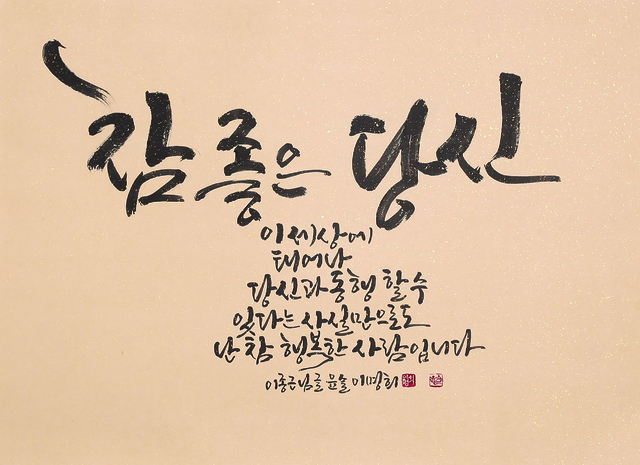 참 좋은 당신
이 세상에
태어나
당신과 동행 할 수
있다는 사실만으로도
난 참 행복한 사람입니다
이종근님글 윤슬 이명희